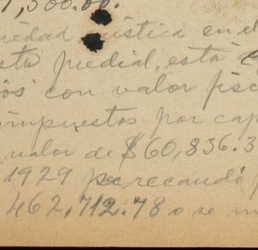 1,500.00.
iedad rústica en el
sto predial, está
os con valor fisc
impuestos por cap
valor de $60,836.3
1929 se recaudó
462,712.78 o se